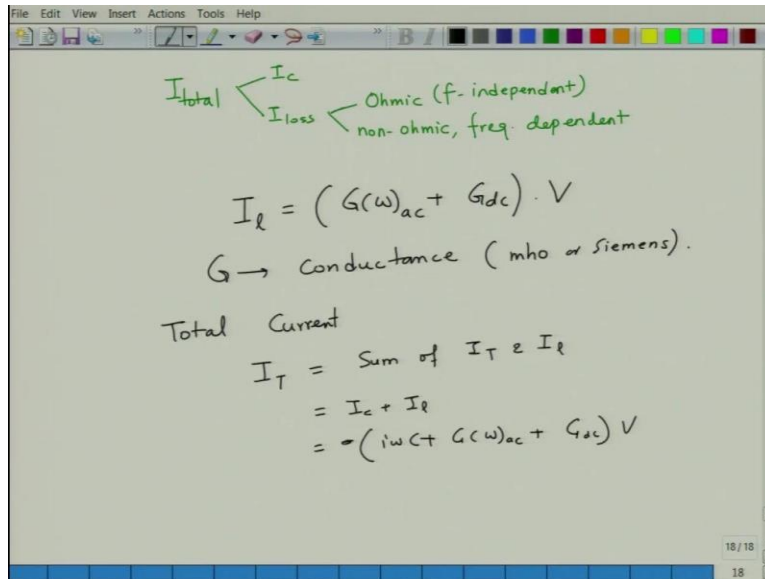 File Edit View Insert Actions Tools Help
I_total < I_c
I_loss < Ohmic (f-independent)
non-ohmic, freq. dependent
I_l = (G(ω)_ac + G_dc) . V
G → Conductance (mho or Siemens).
Total Current
I_T = Sum of I_T & I_l
= I_c + I_l
= (iωC + G(ω)_ac + G_dc) V
18/18
18